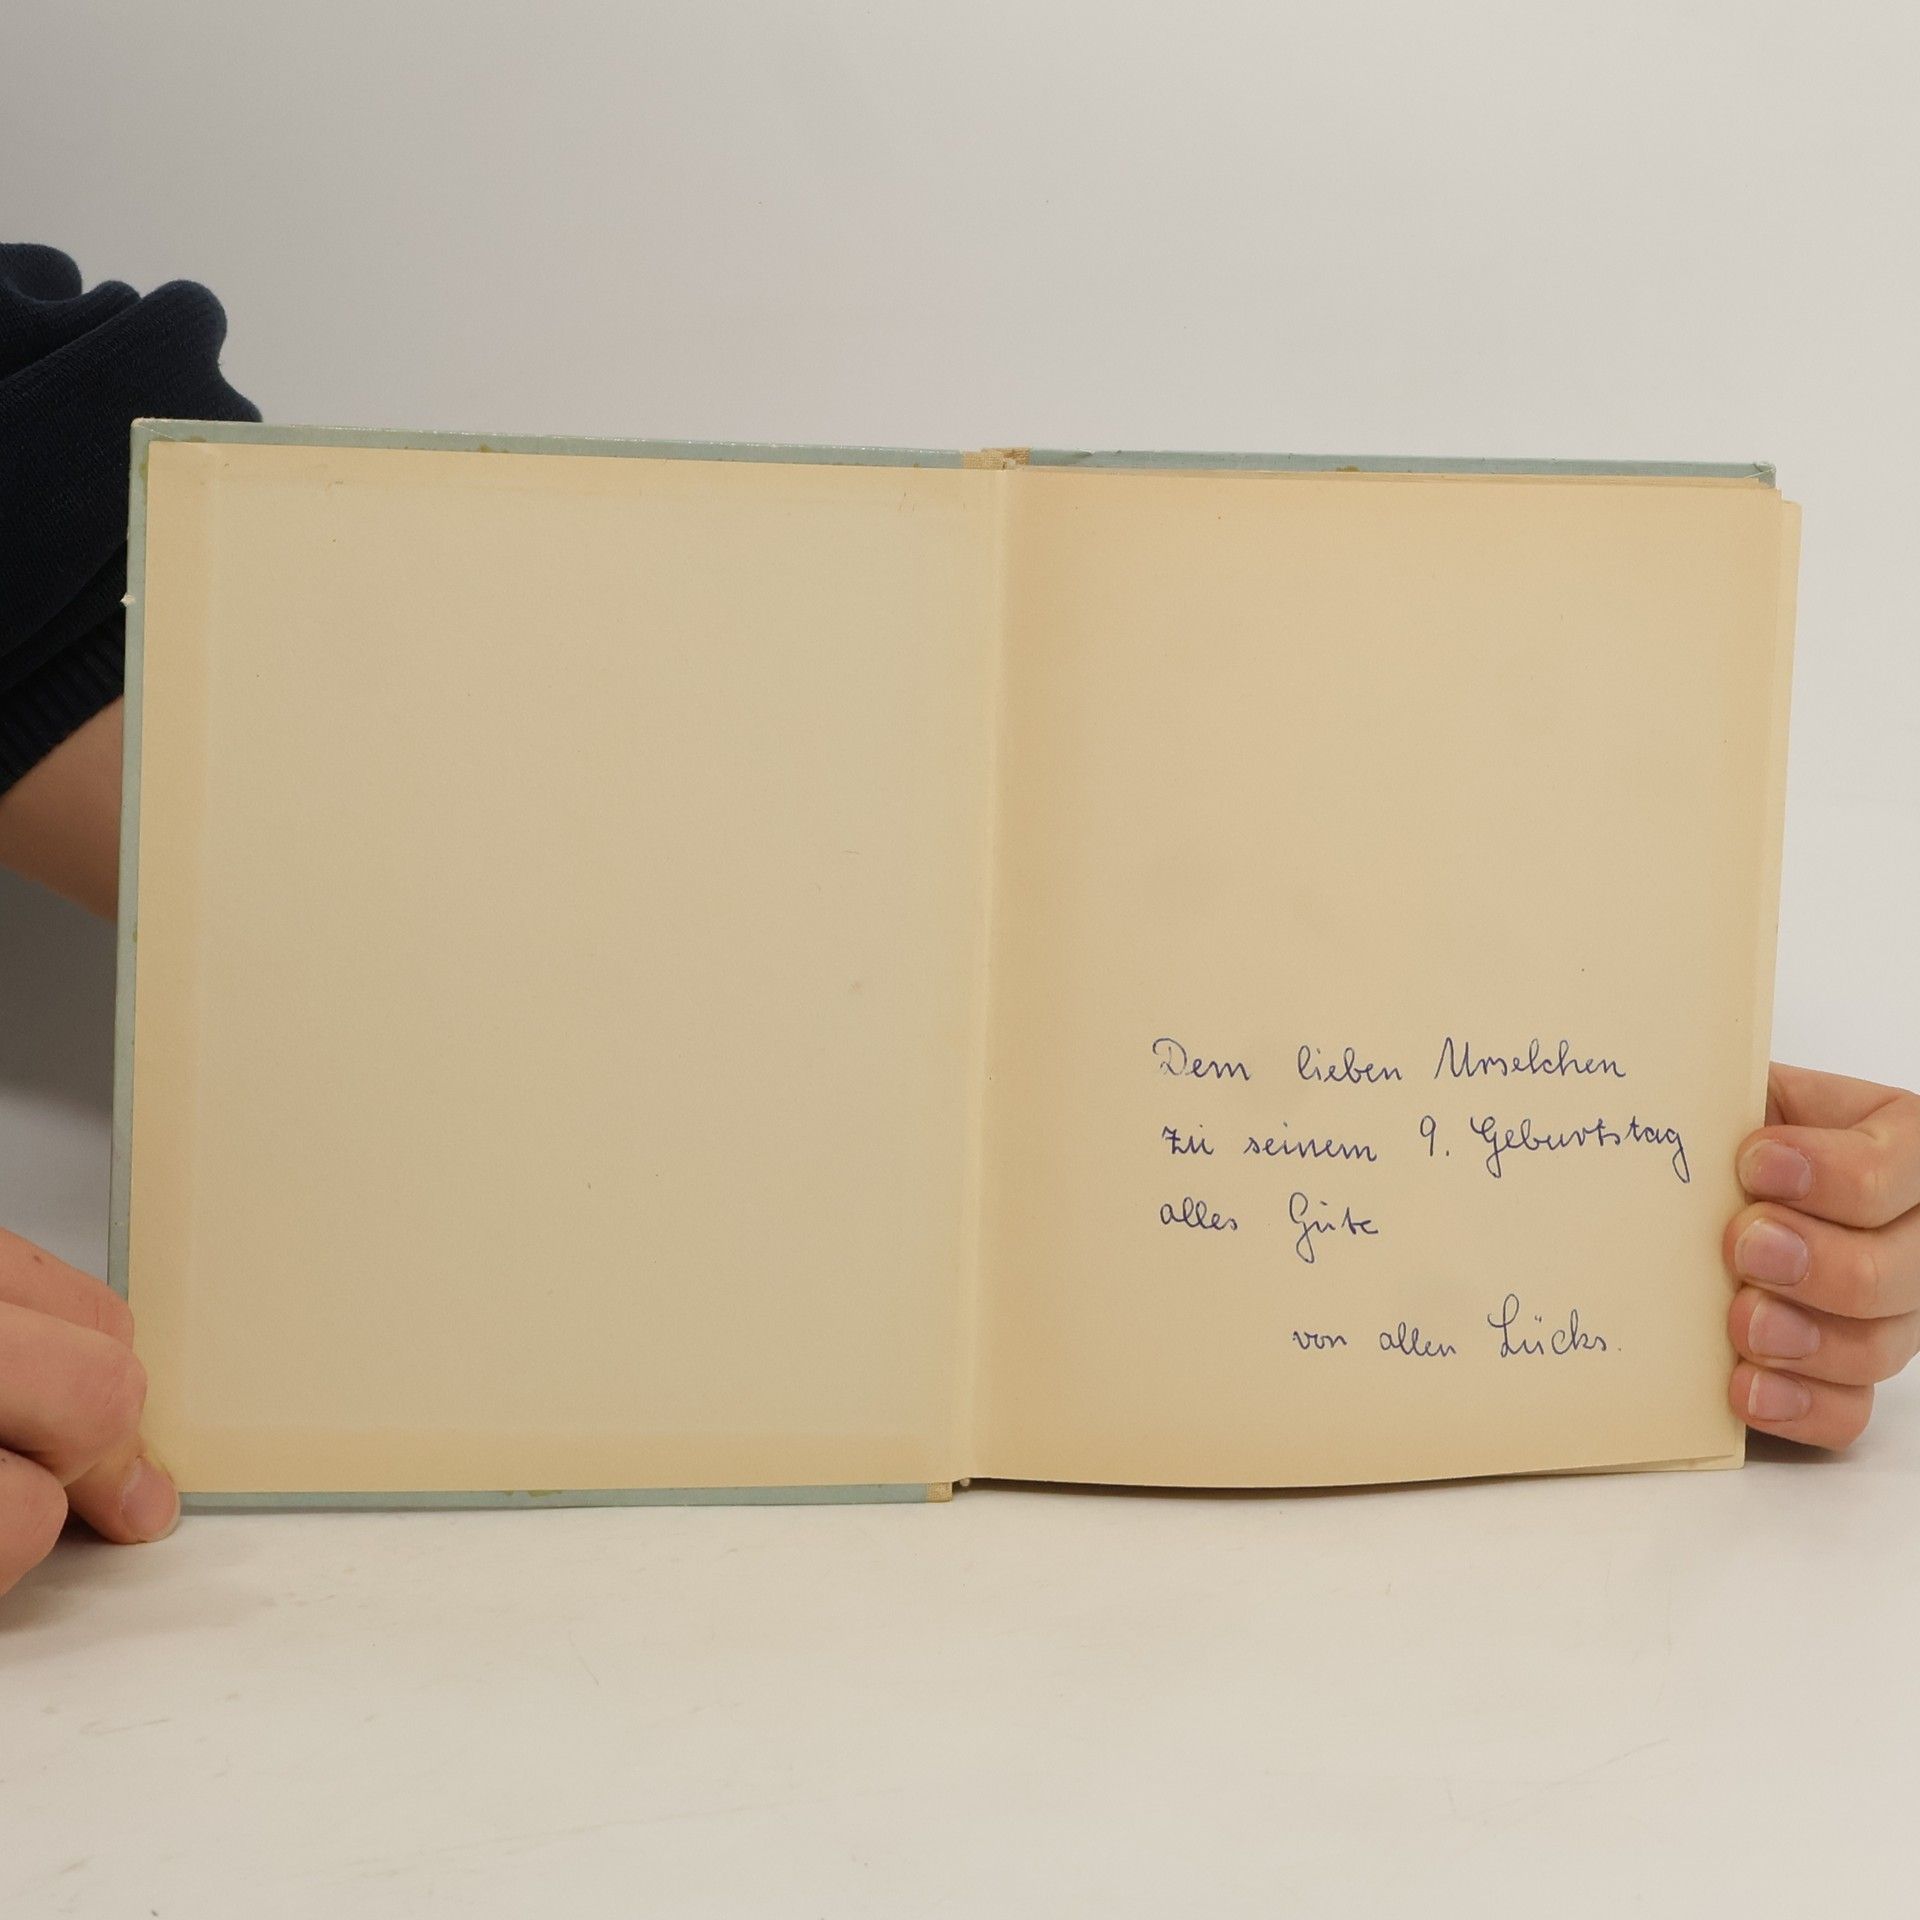 Dem lieben Urselchen
zu seinem 9. Geburtstag
alles Gute
von allen Lücks.